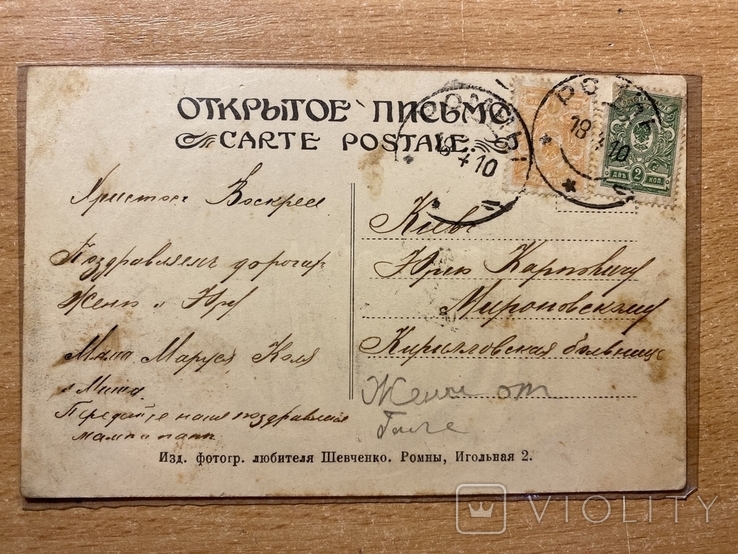 ОТКРЫТОЕ ПИСЬМО
CARTE POSTALE.
РОМНЫ
18 4 10
РОМНЫ
18 4 10
ДВѢ 2 КОП.
Христосъ Воскресе
Поздравляемъ дорогая
Женю и Юру
Мама Маруся Коля
и Миша
Передайте наше поздравленіе
мамы и папы
Кіевъ
Юрію Карповичу
Мироновскому
Кирилловская больница
Жени от
Изд. фотогр. любителя Шевченко. Ромны, Игольная 2.
VIOLITY